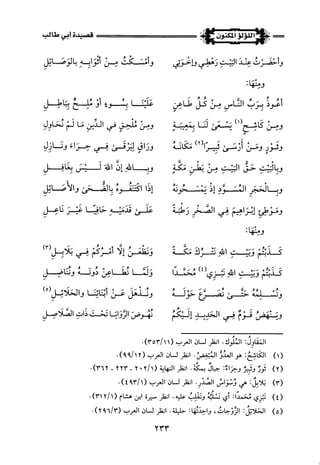 اللؤلؤ المكنون
قصيدة أبي طالب
وَأَحْضَرْتُ عِنْدَ الْبَيْتِ رَهْطِي وَإِخْوَتِي وَأَمْسَكْتُ مِنْ أَثْوَابِهِ بِالْوَصَائِلِ
وَمِنْهَا:
أَعُوذُ بِرَبِّ النَّاسِ مِنْ كُلِّ طَاعِنٍ عَلَيْنَا بِسُوءٍ أَوْ مُلِحٍّ بِبَاطِلِ
وَمِنْ كَاشِحٍ (١) يَسْعَى لَنَا بِمَعِيبَةٍ وَمِنْ مُلْحِقٍ فِي الدِّينِ مَا لَمْ نُحَاوِلِ
وَثَوْرٍ وَمَنْ أَرْسَى ثَبِيرًا (٢) مَكَانَهُ وَرَاقٍ لِيَرْقَى فِي حِرَاءَ وَنَازِلِ
وَبِالْبَيْتِ حَقِّ الْبَيْتِ مِنْ بَطْنِ مَكَّةَ وَبِاللهِ إِنَّ اللهَ لَيْسَ بِغَافِلِ
وَبِالْحَجَرِ الْمُسْوَدِّ إِذْ يَمْسَحُونَهُ إِذَا اكْتَنَفُوهُ بِالضُّحَى وَالْأَصَائِلِ
وَمَوْطِئِ إِبْرَاهِيمَ فِي الصَّخْرِ رَطْبَةٌ عَلَى قَدَمَيْهِ حَافِيًا غَيْرَ نَاعِلِ
وَمِنْهَا:
كَذَبْتُمْ وَبَيْتِ اللهِ نَتْرُكُ مَكَّةَ وَنَظْعَنُ إِلَّا أَمْرُكُمْ فِي بَلَابِلِ (٣)
كَذَبْتُمْ وَبَيْتِ اللهِ نُبْزَى (٤) مُحَمَّدًا وَلَمَّا نُطَاعِنْ دُونَهُ وَنُنَاضِلِ
وَنُسْلِمُهُ حَتَّى نُصَرَّعَ حَوْلَهُ وَنَذْهَلَ عَنْ أَبْنَائِنَا وَالْحَلَائِلِ (٥)
وَيَنْهَضُ قَوْمٌ فِي الْحَدِيدِ إِلَيْكُمُ نُهُوضَ الرَّوَايَا تَحْتَ ذَاتِ الصَّلَاصِلِ
المقاول: الملوك. انظر لسان العرب (٣٥٣/١١).
(١) الكاشح: هو العدو المبغض. انظر لسان العرب (٩٩/١٢).
(٢) ثور وثبير وحراء: جبال بمكة. انظر النهاية (٢٠٢/١ - ٢٢٣ - ٣٦٢).
(٣) بلابل: هي وسواس الصدر. انظر لسان العرب (٤٩٣/١).
(٤) نبزى محمدا: أي نسلبه ونغلب عليه. انظر سيرة ابن هشام (٣١٢/١).
(٥) الحلائل: الزوجات، واحدتها: حليلة. انظر لسان العرب (٢٩٦/٣).
٢٣٣